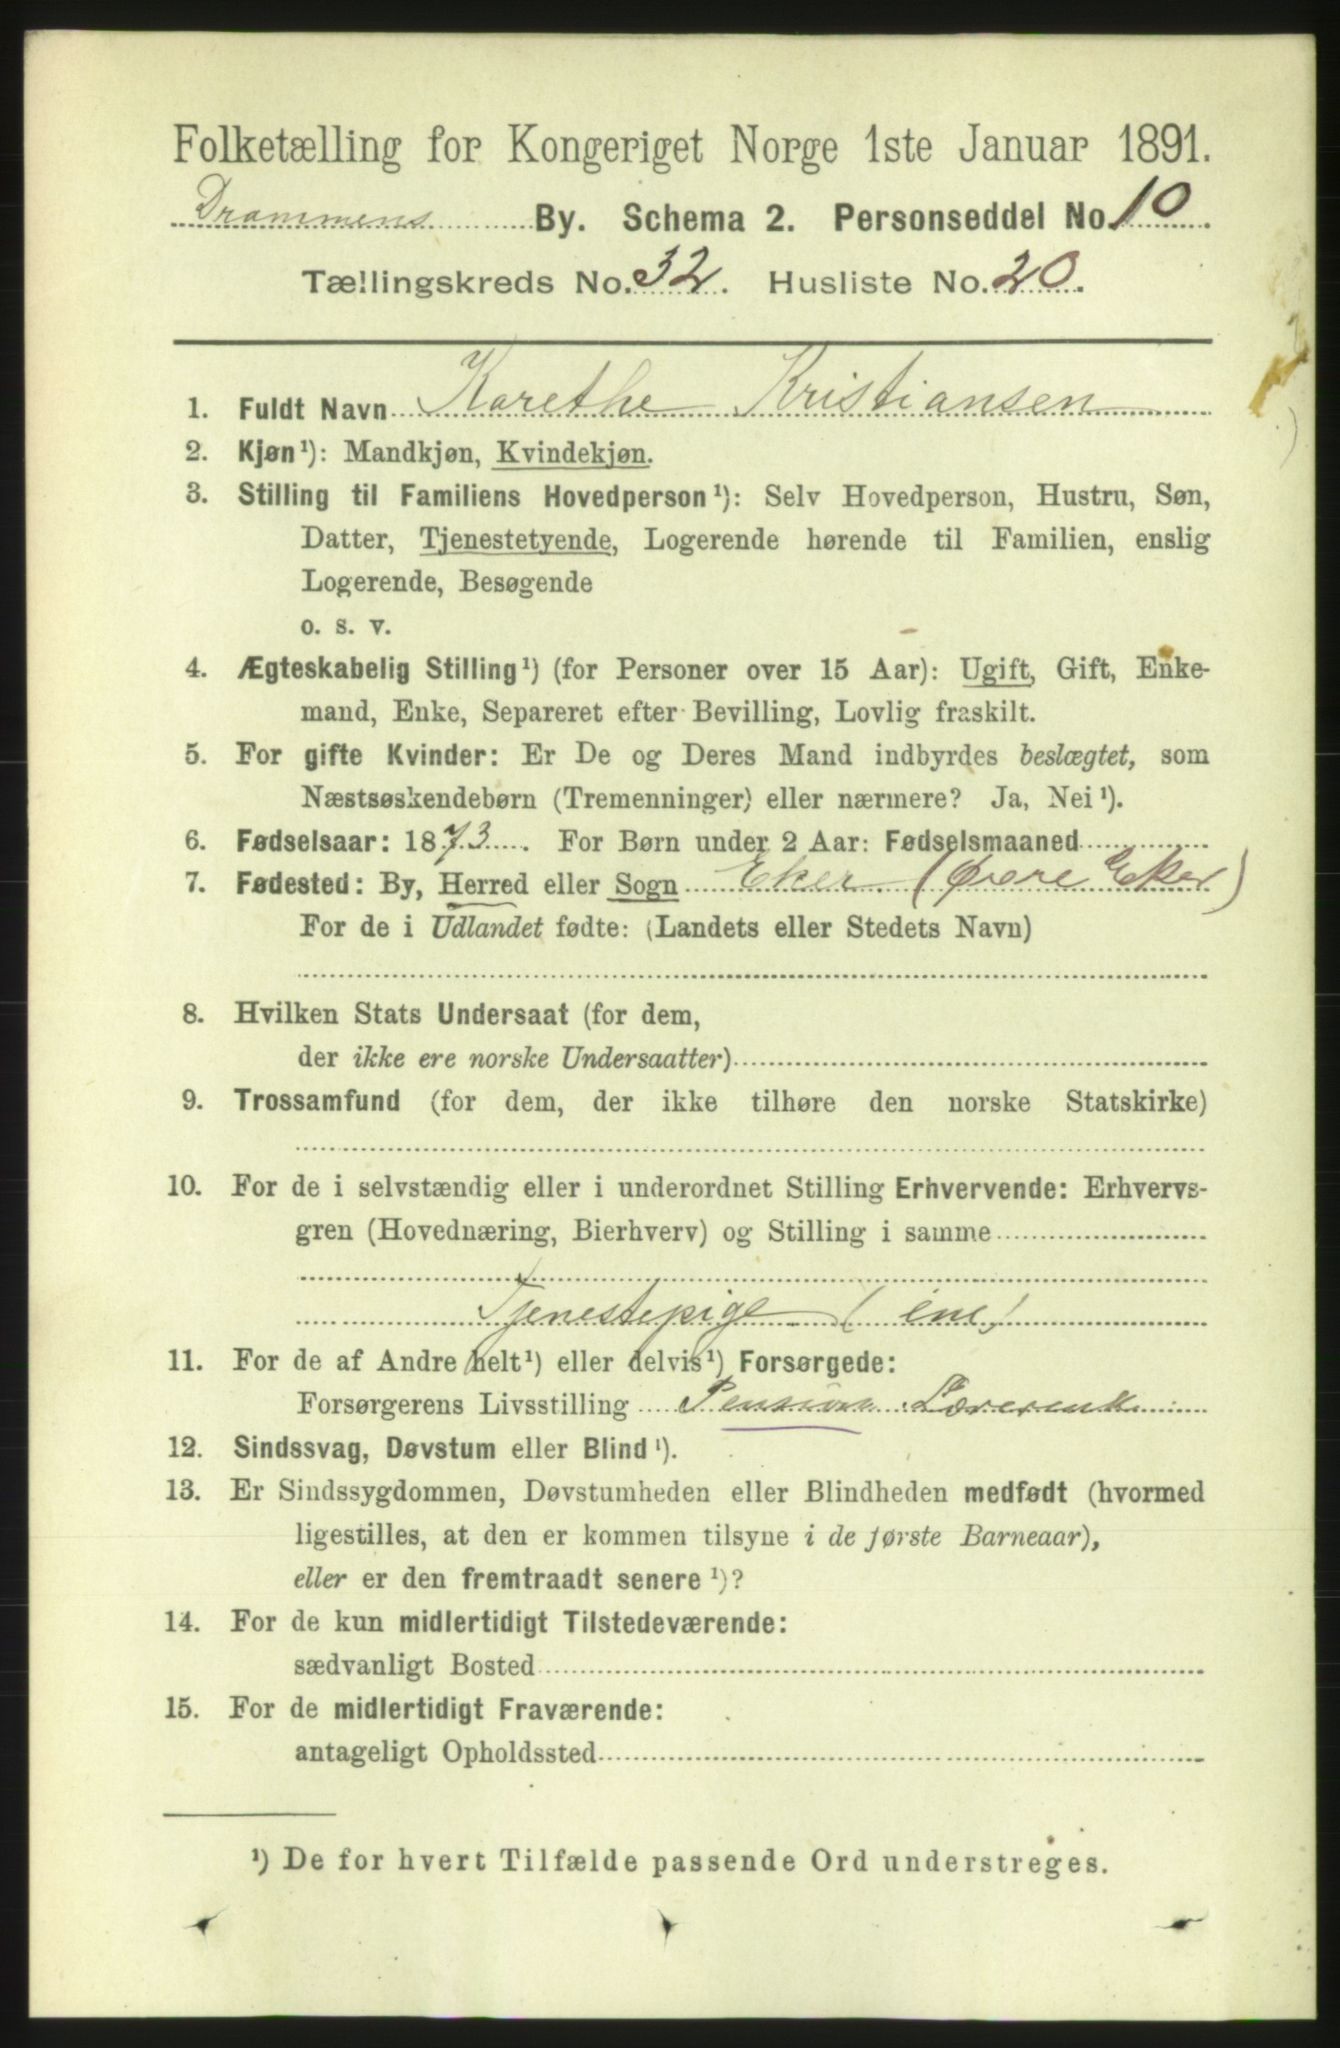 Folketælling for Kongeriget Norge 1ste Januar 1891.
Drammens By. Schema 2. Personseddel No. 10
Tællingskreds No. 32. Husliste No. 20.
1. Fuldt Navn Karethe Kristiansen
2. Kjøn¹): Mandkjøn, Kvindekjøn.
3. Stilling til Familiens Hovedperson¹): Selv Hovedperson, Hustru, Søn,
Datter, Tjenestetyende, Logerende hørende til Familien, enslig
Logerende, Besøgende
o. s. v.
4. Ægteskabelig Stilling¹) (for Personer over 15 Aar): Ugift, Gift, Enke-
mand, Enke, Separeret efter Bevilling, Lovlig fraskilt.
5. For gifte Kvinder: Er De og Deres Mand indbyrdes beslægtet, som
Næstsøskendebørn (Tremenninger) eller nærmere? Ja, Nei¹).
6. Fødselsaar: 1873. For Børn under 2 Aar: Fødselsmaaned
7. Fødested: By, Herred eller Sogn Eker (Øvre Eker)
For de i Udlandet fødte: (Landets eller Stedets Navn)
8. Hvilken Stats Undersaat (for dem,
der ikke ere norske Undersaatter)
9. Trossamfund (for dem, der ikke tilhøre den norske Statskirke)
10. For de i selvstændig eller i underordnet Stilling Erhvervende: Erhvervs-
gren (Hovednæring, Bierhverv) og Stilling i samme
Tjenestepige (ene)
11. For de af Andre helt¹) eller delvis¹) Forsørgede:
Forsørgerens Livsstilling Pension Lærerenke
12. Sindssvag, Døvstum eller Blind¹).
13. Er Sindssygdommen, Døvstumheden eller Blindheden medfødt (hvormed
ligestilles, at den er kommen tilsyne i de første Barneaar),
eller er den fremtraadt senere¹)?
14. For de kun midlertidigt Tilstedeværende:
sædvanligt Bosted
15. For de midlertidigt Fraværende:
antageligt Opholdssted
¹) De for hvert Tilfælde passende Ord understreges.